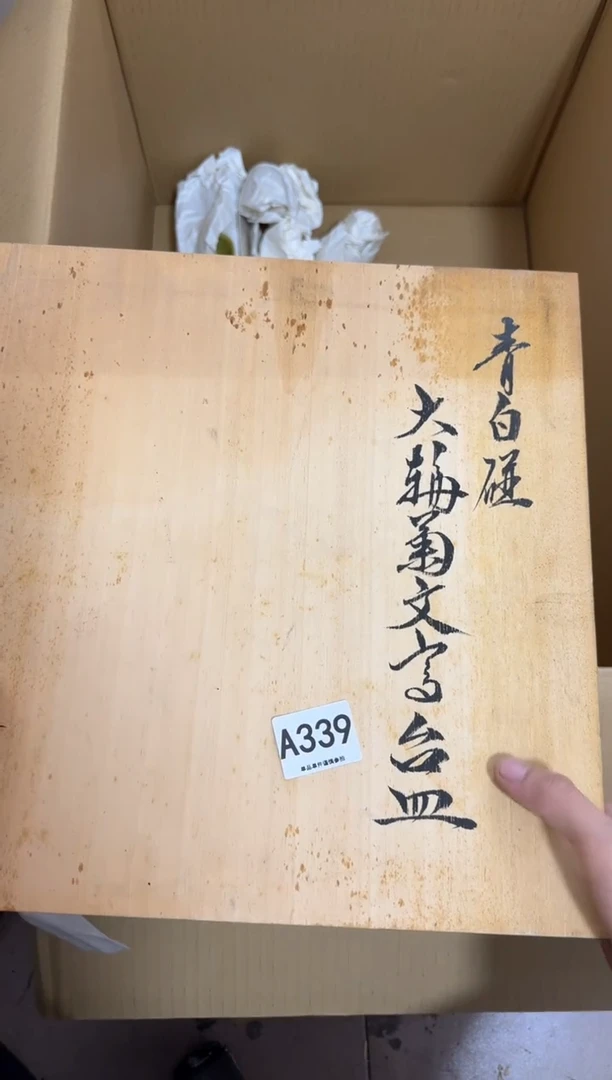 青白磁
大輪菊文写台皿
A339